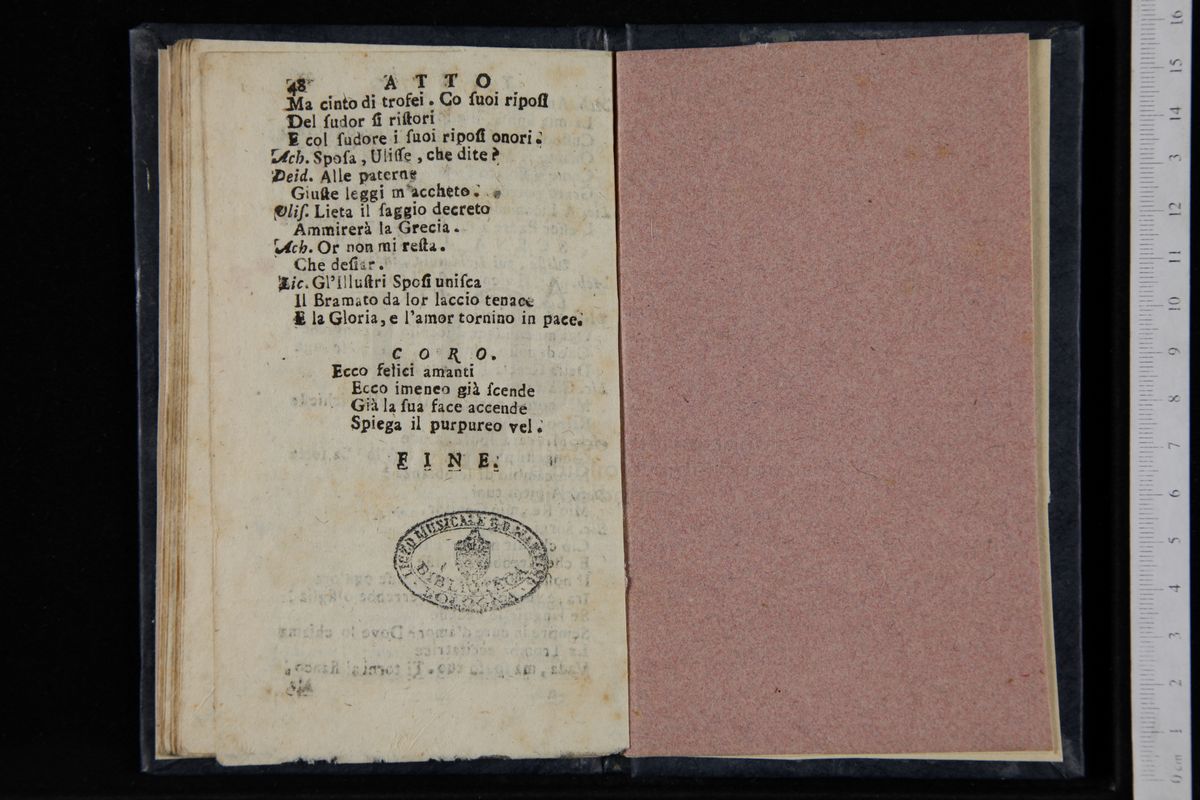 48 ATTO
Ma cinto di trofei. Co ſuoi ripoſi
Del ſudor ſi riſtori
E col ſudore i ſuoi ripoſi onori.
Ach. Spoſa, Uliſſe, che dite?
Deid. Alle paterne
Giuſte leggi m'accheto.
Uliſ. Lieta il ſaggio decreto
Ammirerà la Grecia.
Ach. Or non mi reſta.
Che deſiar.
Lic. Gl'Illuſtri Spoſi uniſca
Il Bramato da lor laccio tenace
E la Gloria, e l'amor tornino in pace.
CORO.
Ecco felici amanti
Ecco imeneo già ſcende
Già la ſua face accende
Spiega il purpureo vel.
FINE.
LICEO MUSICALE
BIBLIOTECA
BOLOGNA
16
15
14
13
12
11
10
9
8
7
6
5
4
3
2
1
0 cm